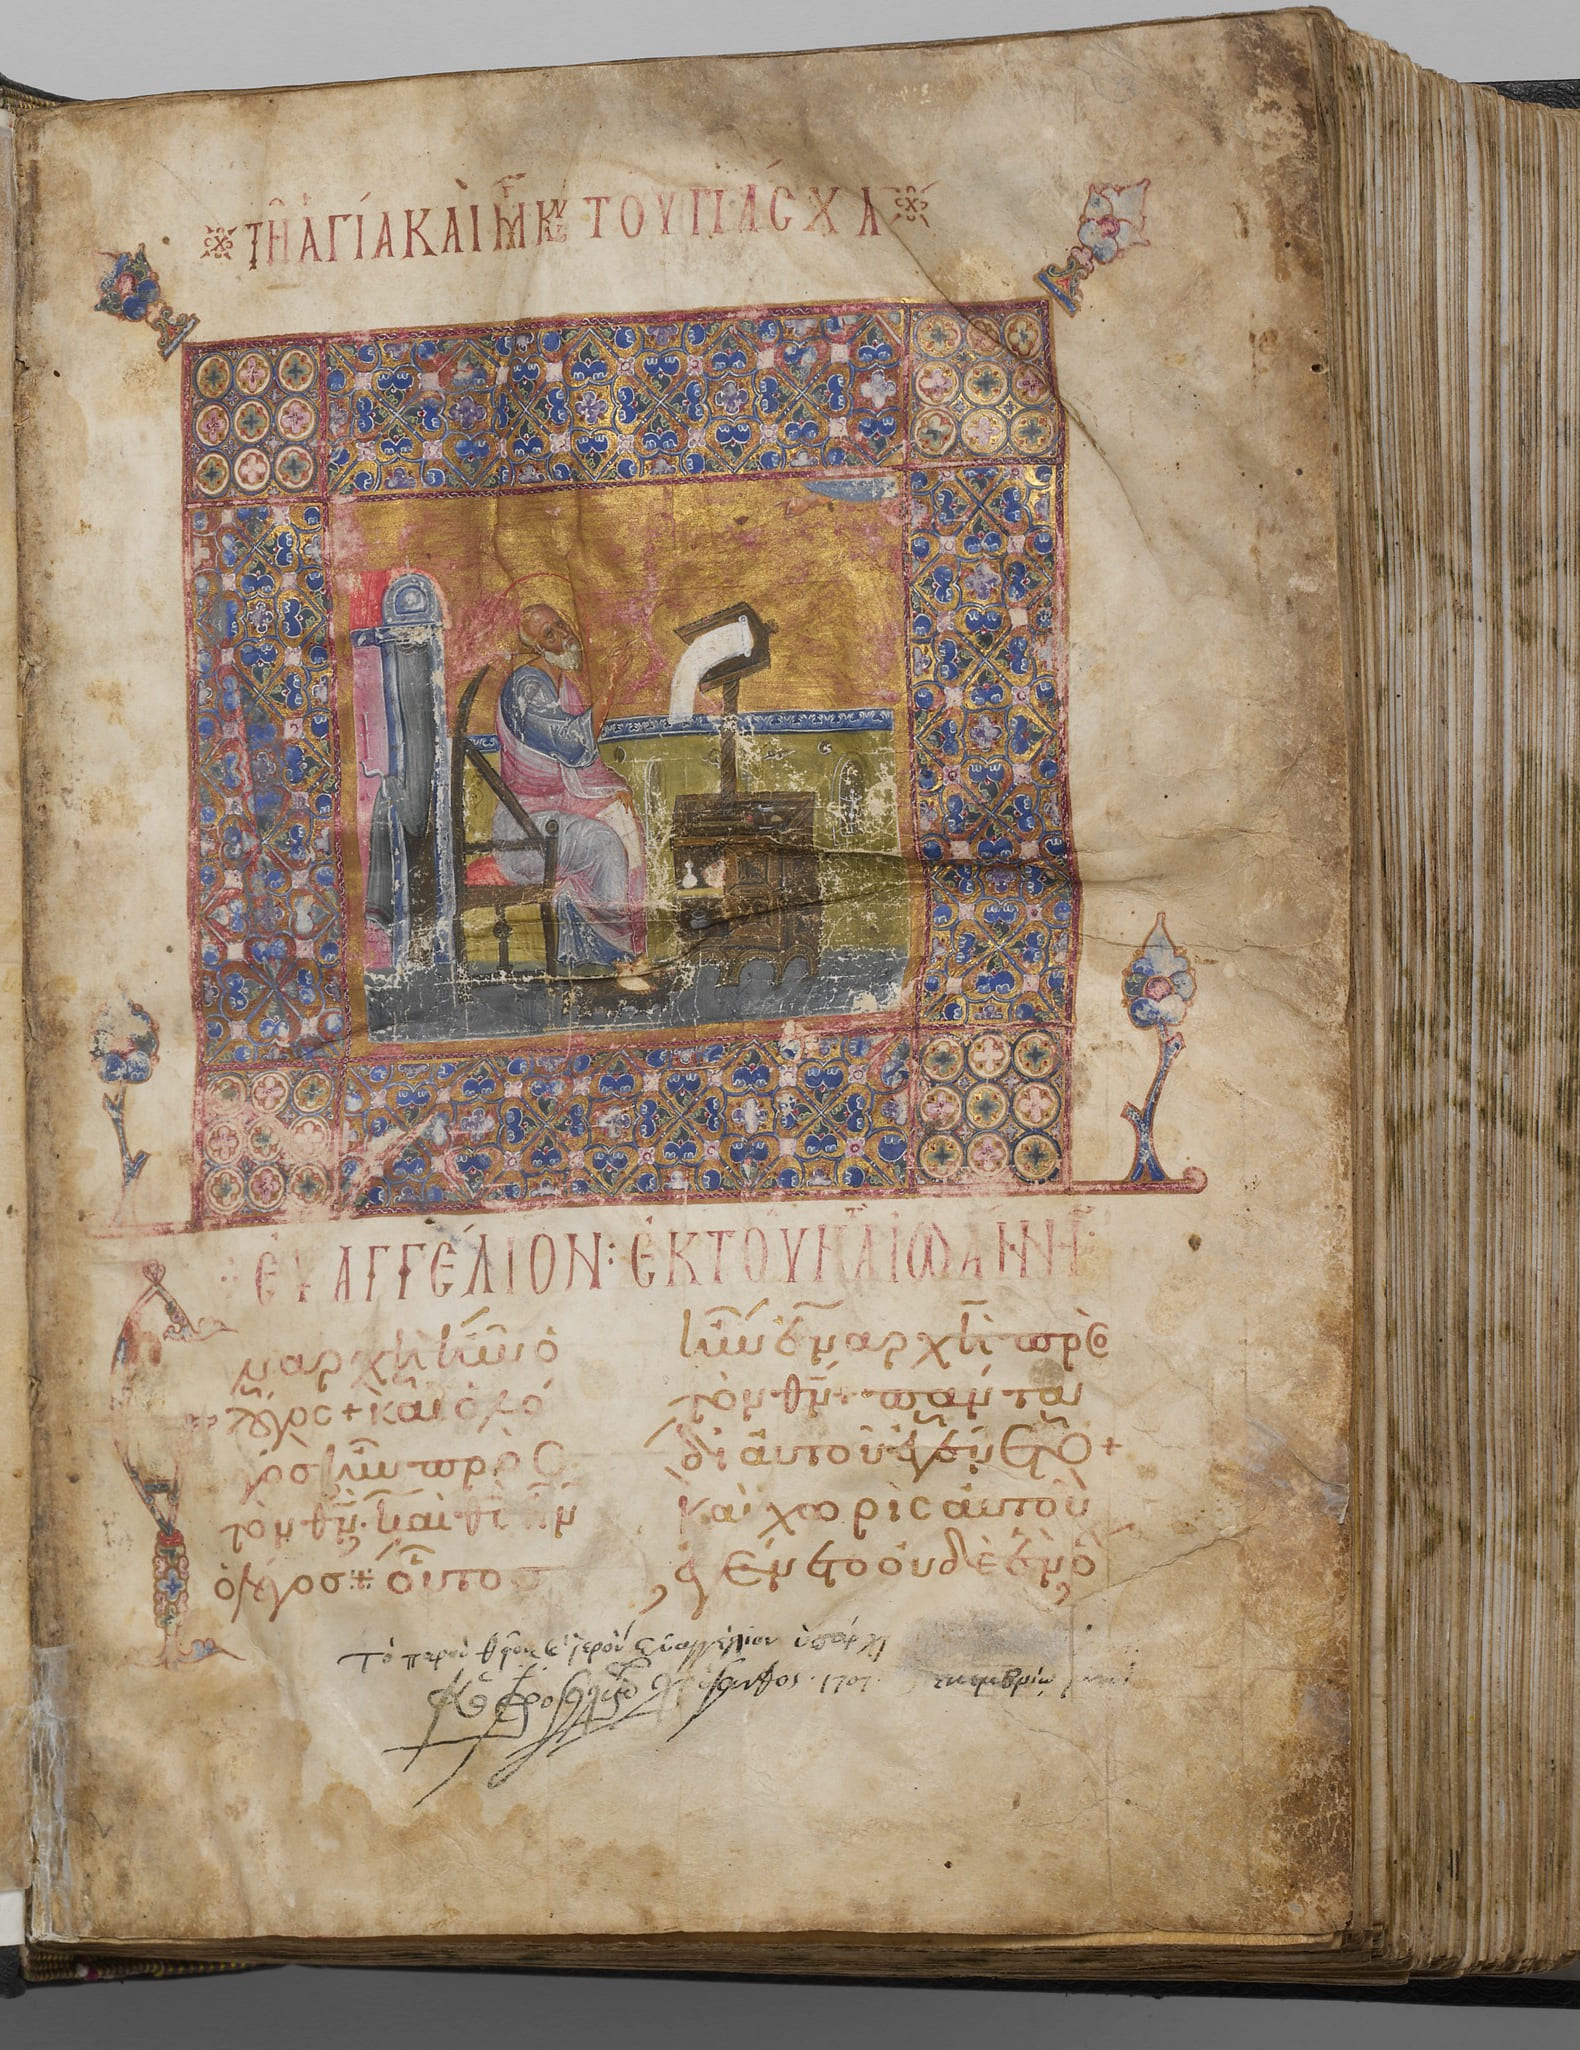 ΤΗ ἉΓΊΑ ΚΑῚ Μ ΚΥ ΤΟΥ ΠΆΣΧΑ
ΕΥΑΓΓΈΛΙΟΝ: ἘΚ ΤΟΥ ΚΑΤᾺ ἸΩΆΝΝΗ
Ἐν ἀρχῇ ἦν ὁ
λόγος + καὶ ὁ λό
γος ἦν πρὸς
τὸν θν. καὶ θς ἦν
ὁ λόγος ⁘ οὗτος
ἦν ἐν ἀρχῇ πρὸς
τὸν θν· πάντα
δι' αὐτοῦ ἐγένετο +
καὶ χωρὶς αὐτοῦ
ἐγένετο οὐδὲ ἓν ὃ
Τὸ παρὸν θεῖον κ ἱερὸν Εὐαγγέλιον ὑπάρχει
Χρύσανθος · 1707